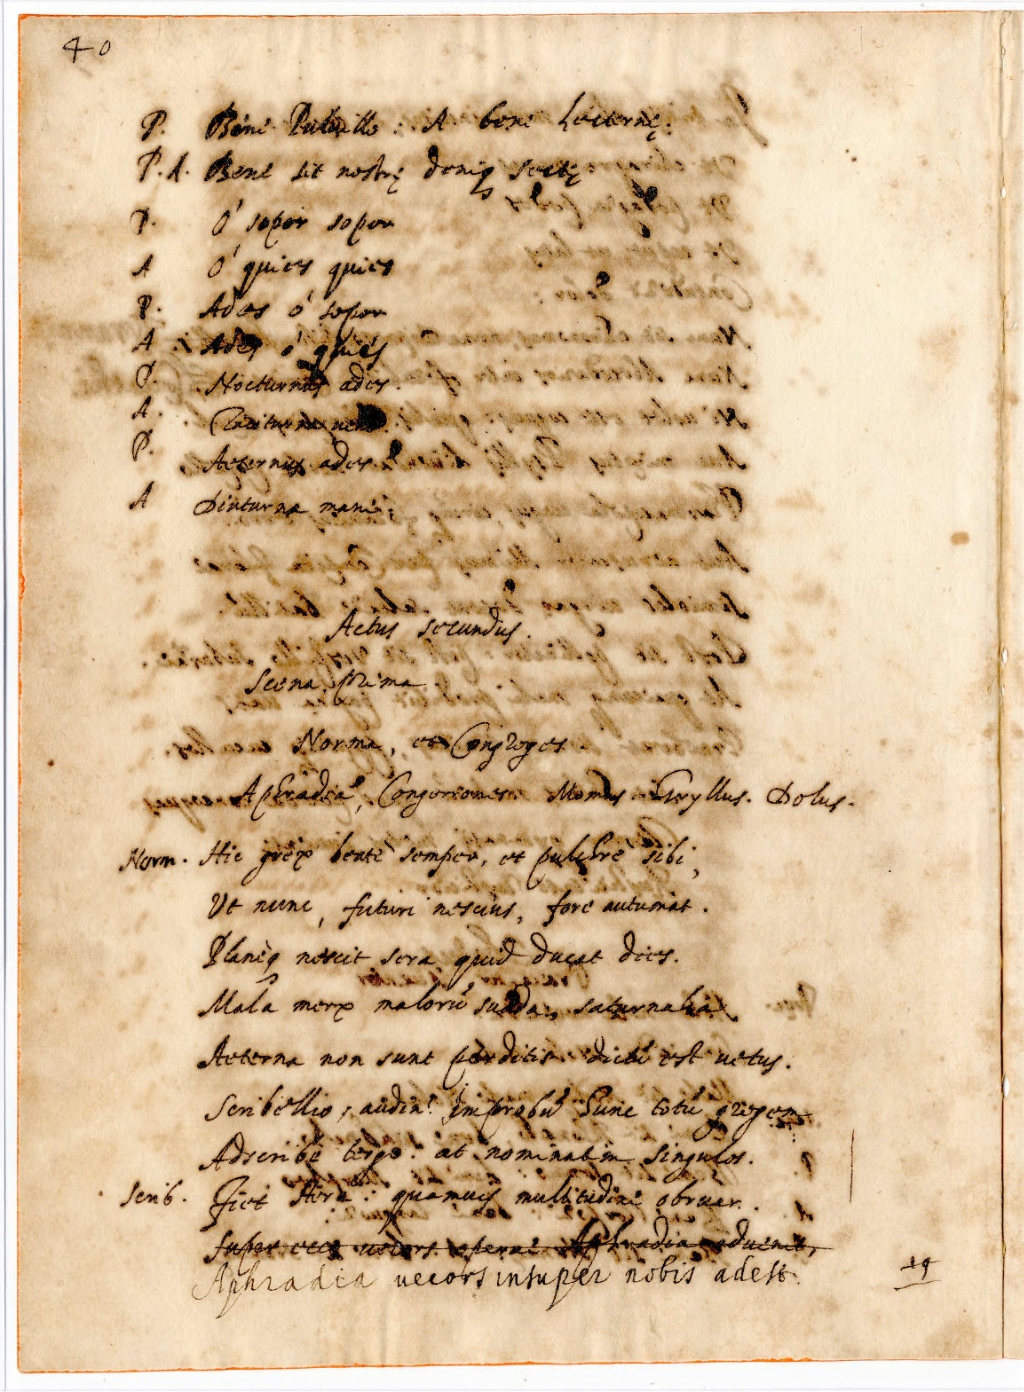 40
P. Bene Pulvillo: A bene Lucernę:
P. A. Bene sit nostrę deniq sectę
P. O' sopor sopor
A O' quies quies
P. Ades o' sopor
A. Ades o' quies
P. Nocturnus ades.
A. Taciturna veni.
P. Aeternus ades
A Diuturna mane;
Actus secundus.
Scena Prima
Norma, et Congreges.
Aphradia, Congerrones Momus Gryllus. Dolus.
Norm. Hic grex beate semper, et pulchre sibi,
Ut nunc, futuri nescius, fore autumat.
Planeq nescit sera quid ducat dies.
Mala merx malorū suada, saturnalia
Aeterna non sunt perditis. dictū est vetus.
Scribellio, audin? Improbū hunc totū gregem
Adscribe tergo: at nominatim singulos.
Scrib. Fiet Hera: quamvis multitudine obruar.
Super ecce vecors Aphradia advenit,
Aphradia vecors insuper nobis adest.
19